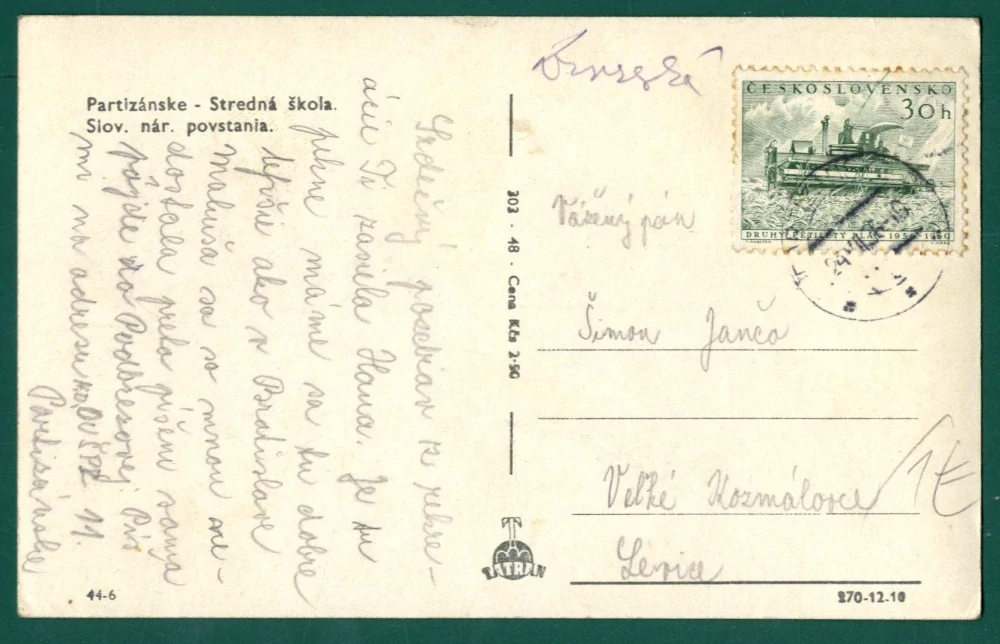 Partizánske - Stredná škola.
Slov. nár. povstania.
Srdečný pozdrav z rekre-
ácie Ti zasiela Hana. Je tu
pekne máme sa tu dobre
lepšie ako v Bratislave
sa so mnou ne-
dostala preto píšem sama
pôjde do Podbrezovej. Píš
mi na adresu 11.
Partizánske
44-6
303 - 48 - Cena Kčs 2·50
TATRAN
ČESKOSLOVENSKO
30h
DRUHÝ PĚTILETÝ PLÁN 1956-1960
Vážený pán
Šimon Jančo
Veľké Kozmálovce
Levice
1€
270-12-10